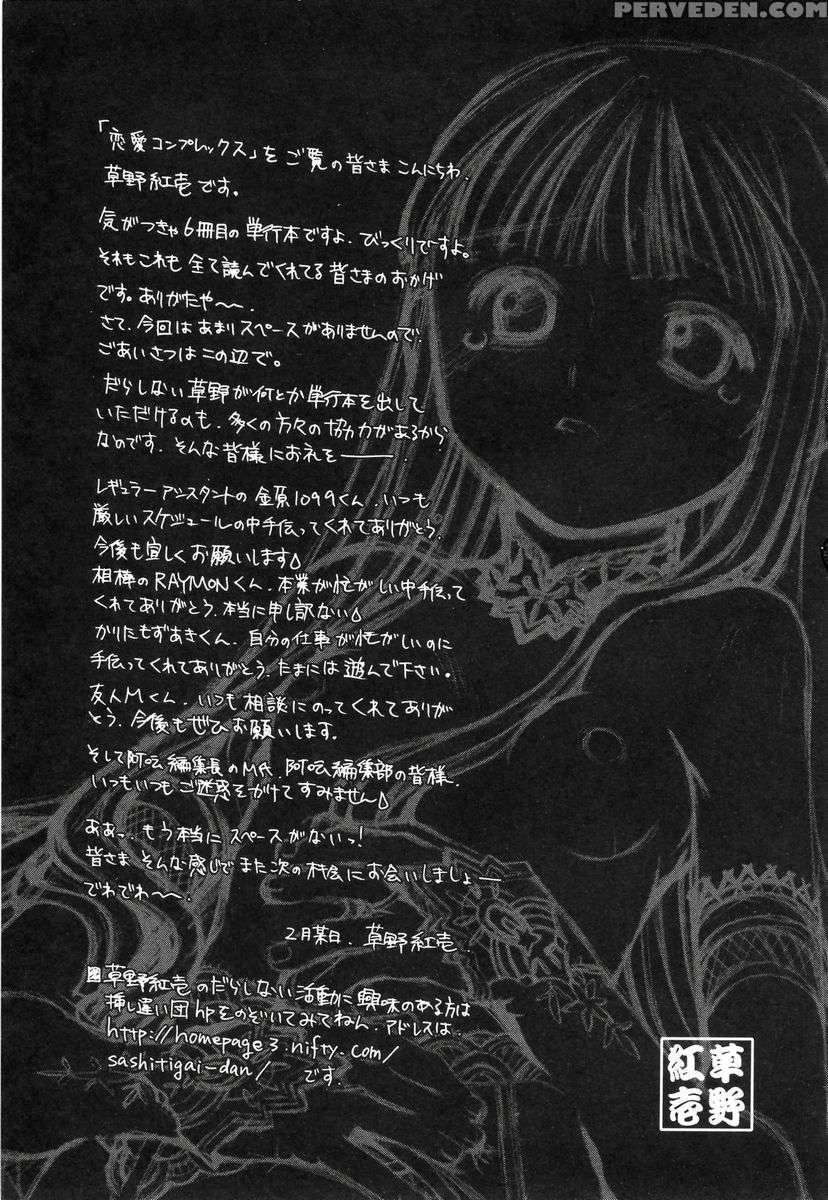 PERVEDEN.COM
「恋愛コンプレックス」を ご覧の皆さま こんにちわ.
草野紅壱です。
気がつきゃ6冊目の単行本ですよ. びっくりですよ。
それもこれも 全て読んでくれてる 皆さまのおかげ
です。ありがたや〜〜.
さて、今回は あまりスペースがありませんので.
ごあいさつは この辺で。
だらしない草野が何とか単行本を出して
いただけるのも、多くの方々の協力があるから
なのです. そんな皆様にお礼を――――.
レギュラーアシスタントの 金原1099くん. いつも
厳しいスケジュールの中手伝ってくれてありがとう.
今後も宜しくお願いします△
相棒のRAYMONくん. 本業が忙がしい中手伝って
くれてありがとう. 本当に申し訳ない△
かりたもずあきくん. 自分の仕事が忙がしいのに
手伝ってくれてありがとう. たまには遊んで下さい。
友人Mくん. いつも相談にのってくれてありが
とう. 今後もぜひお願いします。
そして阿吽編集長のM氏. 阿吽編集部の皆様.
いつもいつもご迷惑をかけてすみません△
ああっ、もう本当にスペースがないっ!
皆さま そんな感じでまた次の機会にお会いしましょー
でわでわ〜〜.
2月某日. 草野紅壱.
草野紅壱のだらしない活動に興味のある方は
挿し違い団hpをのぞいてみてねん. アドレスは.
http://homepage3.nifty.com/
sashitigai-dan/ です.
草野
紅壱